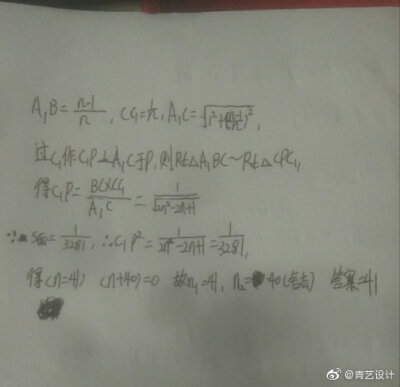 A₁B=\frac{n-1}{n}, CC₁=\frac{1}{n}, A₁C=\sqrt{1²+(\frac{n-1}{n})²},
过C₁作C₁P⊥A₁C于P,则Rt△A₁BC∽Rt△CPC₁,
得C₁P=\frac{BC×CC₁}{A₁C}=\frac{1}{\sqrt{2n²-2n+1}}
∵ =\frac{1}{3281}, ∴C₁P²=\frac{1}{2n²-2n+1}=\frac{1}{3281},
得(n-41)(n+40)=0 故n₁=41, n₂=-40(舍去) 答案=41
@青艺设计